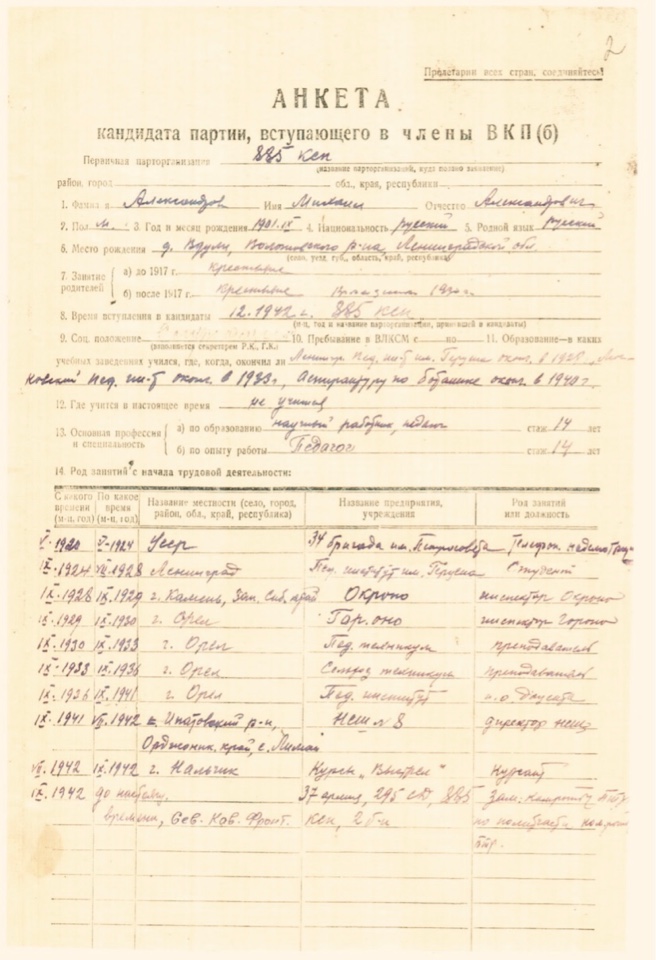 2
Пролетарии всех стран, соединяйтесь!
АНКЕТА
кандидата партии, вступающего в члены ВКП(б)
Первичная парторганизация 885 ксп
(название парторганизаций, куда подано заявление)
район, город обл., края, республики
1. Фамилия Александров Имя Михаил Отчество Александрович
2. Пол м. 3. Год и месяц рождения 1901.IX 4. Национальность русский 5. Родной язык русский
6. Место рождения д. Вдули, Волотовского р-на, Ленинградской обл.
(село, уезд, губ., область, край, республика)
7. Занятие родителей а) до 1917 г. крестьяне
б) после 1917 г. крестьяне 1930 г.
8. Время вступления в кандидаты 12.1942 г. 885 ксп
(м-ц, год и название парторганизации, принявшей в кандидаты)
9. Соц. положение 10. Пребывание в ВЛКСМ с по 11. Образование—в каких
(заполняется секретарем Р.К., Г.К.)
учебных заведениях учился, где, когда, окончил ли Ленингр. Пед. ин-т им. Герцена оконч. в 1928,
ковский пед. ин-т оконч. в 1933 г., Аспирантуру по ботанике оконч. в 1940 г.
12. Где учится в настоящее время не учится
13. Основная профессия и специальность а) по образованию научный работник, педагог стаж 14 лет
б) по опыту работы Педагог стаж 14 лет
14. Род занятий с начала трудовой деятельности:
С какого времени (м-ц, год) По какое время (м-ц, год) Название местности (село, город, район, обл., край, республика) Название предприятия, учреждения Род занятий или должность
V-1920 V-1924 Усср 34 бригада им. Петросовета Телефон. надсмотрщ
IX-1924 VII-1928 Ленинград Пед. институт им. Герцена Студент
IX-1928 IX-1929 г. Камень, Зап. Сиб. край Окроно инспектор Окроно
IX-1929 IX-1930 г. Орел Гороно инспектор Гороно
IX-1930 IX-1933 г. Орел Пед. техникум преподаватель
IX-1933 IX-1936 г. Орел Сельхоз техникум преподаватель
IX-1936 IX-1941 г. Орел Пед. институт и.о. доцента
IX-1941 VII-1942 Ипатовский р-н, НСШ № 8 директор НСШ
Орджоник. край, с. Лиман
VII-1942 IX-1942 г. Нальчик Курсы „Выстрел" Курсант
IX-1942 до настоящ. 37 армия, 295 сд, 885 Зам.
времени, Сев. Кав. Фронт. ксп, 2 б-н по политчасти